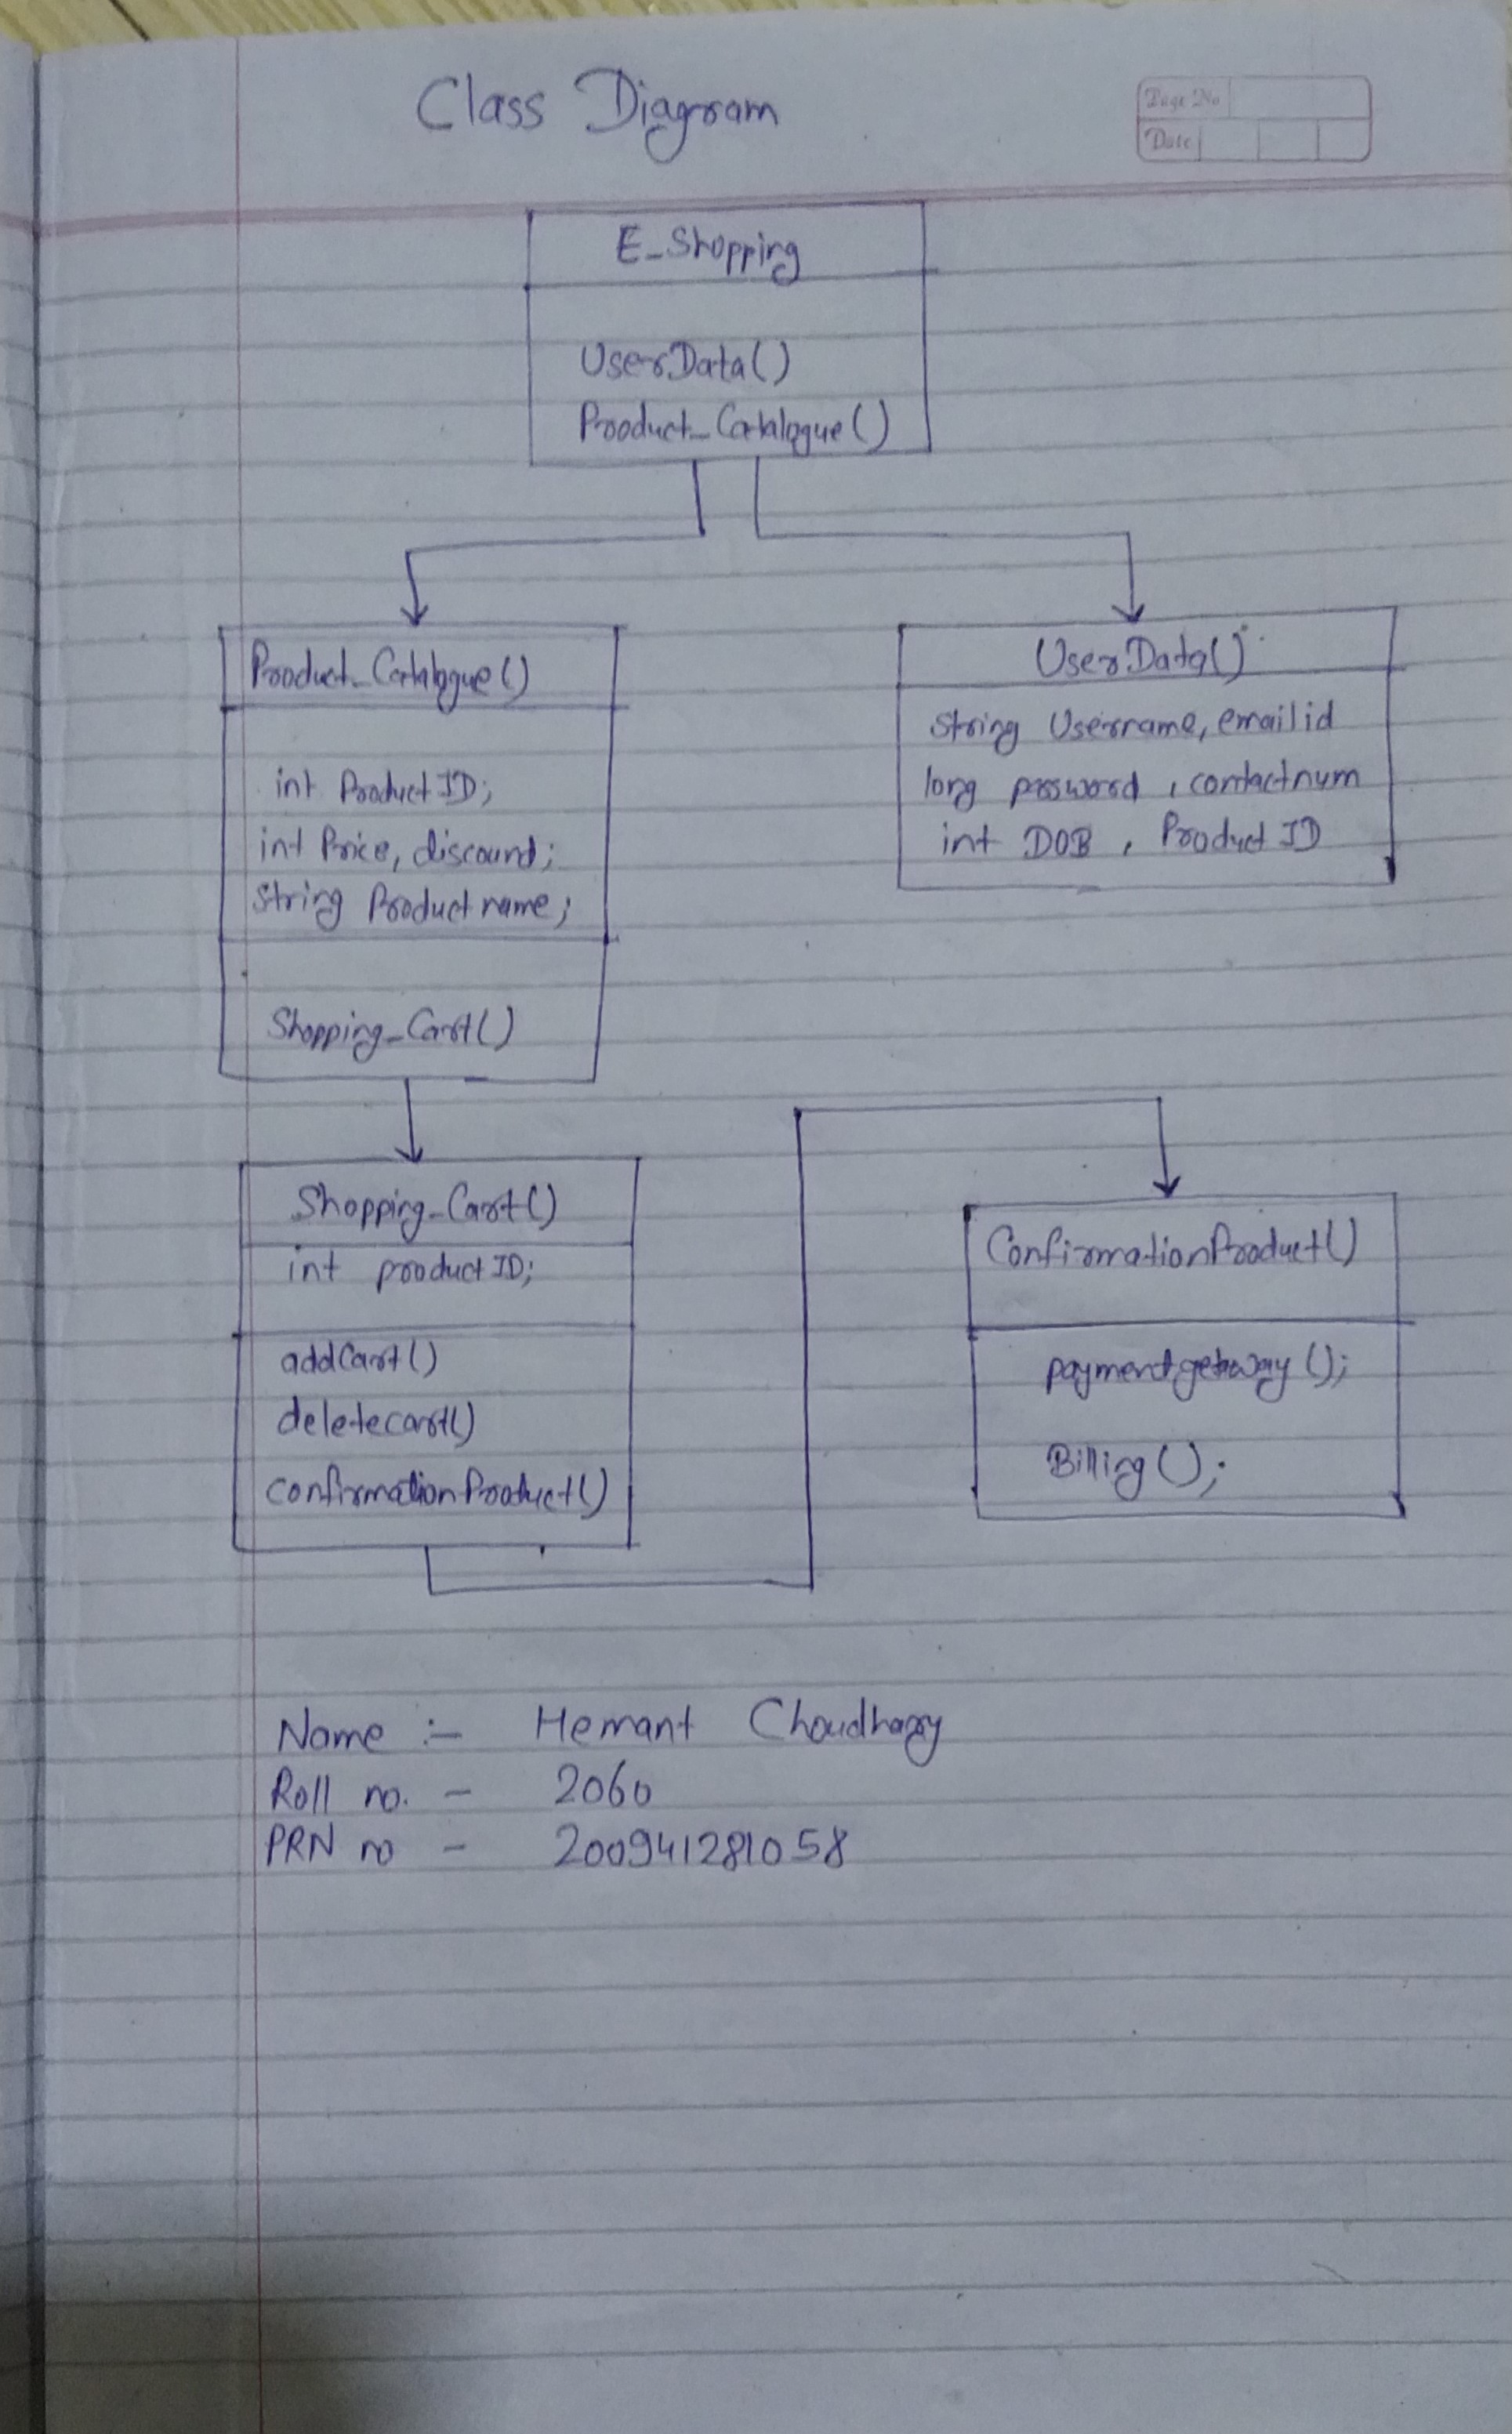 Class Diagram
Page No
Date
E_Shopping
UserData()
Product_Catalogue()
Product_Catalogue()
int ProductID;
int Price, discound;
String Productname;
Shopping_Cart()
UserData()
String Username, emailid
long password, contactnum
int DOB, Product ID
Shopping_Cart()
int productID;
addCart()
deletecart()
confirmationProduct()
ConfirmationProduct()
paymentgetway();
Billing();
Name :- Hemant Choudhary
Roll no. - 2060
PRN no - 200941281058